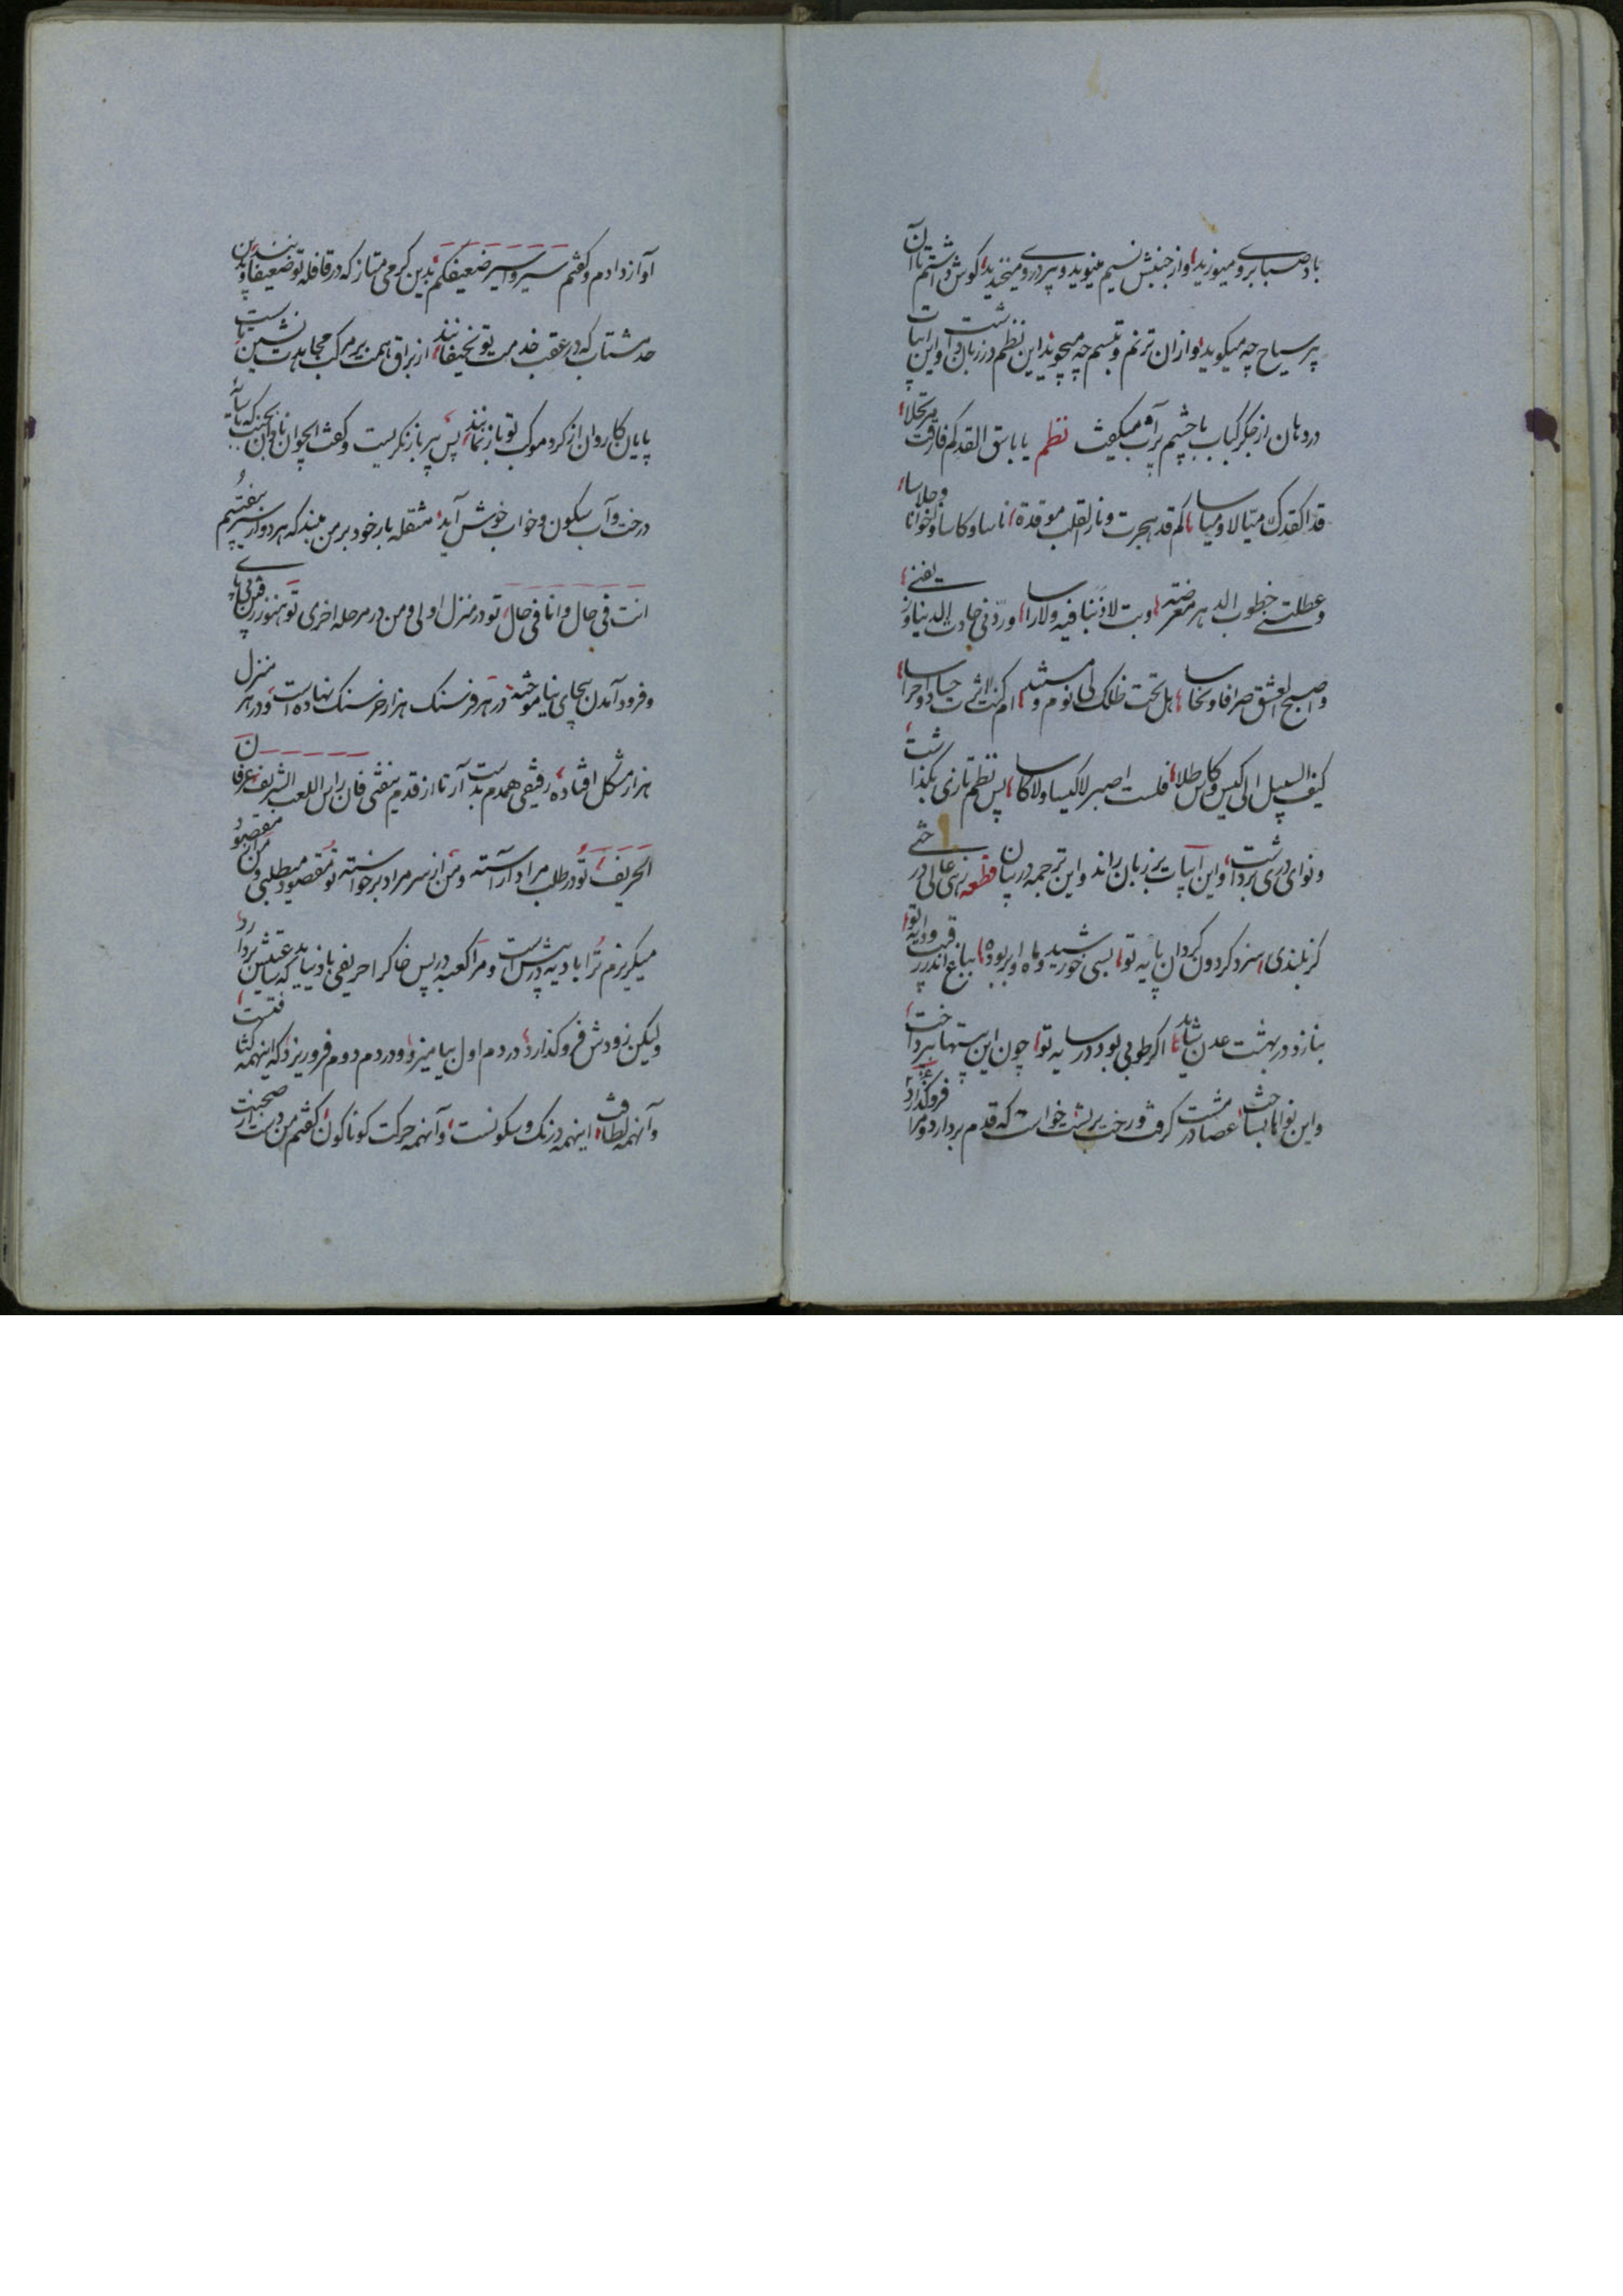 باد صبا برو میوزید، و از جنبش نسیم مینوید و پیر در و میخندید، کوش داشتم تا آن
پیر سیاح چه میکوید، و از ان ترنم و تبسم چه میجوید، این نظم در زبان داشت و این ابیات
در دهان از جکر کباب با چشم پر آب میکفت نظم یا باسق القد کم فارقت مرتحلا،
قدا کقدک میالا و میاسا، کم قد هجرت و نار القلب موقدة، اناسا و کاسا و اخوانا و جلاسا،
و عطلتنی خطوب الدهر معرضة، وبت لا ذنبا فیه ولا راسا، و ردنی حادث الدنیا و
واصبح العشق صرافا و نخاسا، هل تحت ظلک لی نوم و مستند، ام کنت لاثرت جیادا و حراسا،
کیف السبیل الی کیس و کاس طلا، فلست اصبر لا کیسا ولا کاسا، پس نظم تازی بکذاشت،
و نوای دری برداشت، و این ابیات بر زبان راند و این ترجمه در بیان قطعه زهی عالی درختی
کز بلندی، سزد کردون کردان پایه تو، بسی خورشید و ماه او بر بوده، بباغ اندر رقیب و دایه تو،
بنازد در بهشت عدن شاید، اکر طوبی بود در سایه تو، چون این بیتها بپرداخت،
و این نواها بساخت، عصا در مشت کرفت و رخت بر پشت خواست که قدم بردارد و مرا فروکذارد
آواز دادم و کفتم سیروا سیر ضعیفکم بدین کرمی متاز که در قافله تو ضعیفانند و بدین
حد مشتاب که در عقب خدمت تو نحیفانند، از براق همت بر مرکب مجاهدت نشین تا پست
پایان کاروان از کرد موکب تو باز نمانند، پس پیر باز نکریست و کفت ایجوان ناوان بجنبک که با سایه
درخت و آب سکون و خواب خوش آید، مثقله بار خود بر من مبند که هر دو از سیر بیفتیم
انت فی حال و انا فی حال، تو در منزل اولی و من در مرحله اخری تو هنوز رفتن بی پای
و فرود آمدن بیجای نیاموخته، در هر فرسنک هزار خرسنک نهاده است، و در هر منزل
هزار مشکل افتاده، رفیقی همدم بدست آر تا از قدم نیفتی فان راس اللعب الشریف عرفان
الحریف، تو در طلب مراد آراسته و من از سر مراد برخواسته تو مقصود میطلبی و من از مقصود
میکریزم ترا بادیه در پیش است و مرا کعبه در پس خاکرا حریفی باد نیاید که بباس عقیش بردارد،
ولیکن زودش فروکذارد، در دم اول بیامیزد، و در دم دوم فروریزد که اینهمه کثافتست،
و آنهمه لطافت، اینهمه درنک و سکونست، و آنهمه حرکت کوناکون، کفتم من دست از صحبت